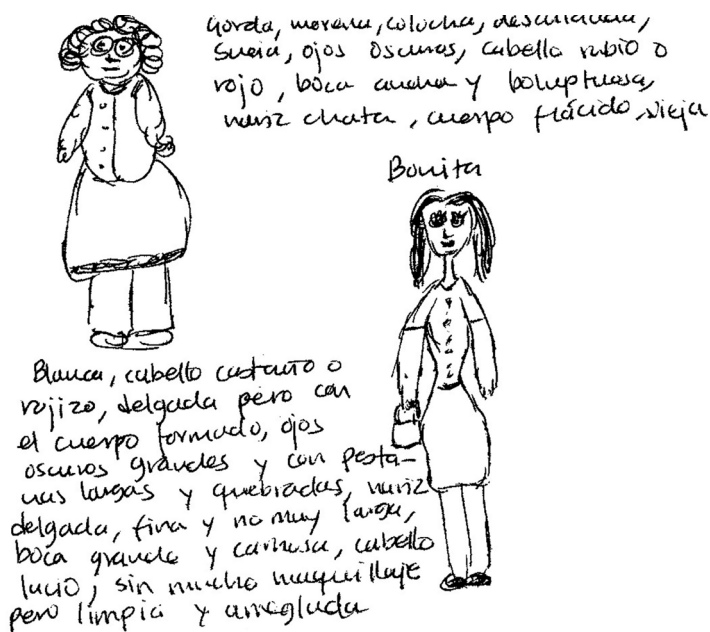 Gorda, morena, colocha, descuidada,
sucia, ojos oscuros, cabello rubio o
rojo, boca ancha y boluptuosa,
nariz chata, cuerpo flácido, vieja
Bonita
Blanca, cabello castaño o
rojizo, delgada pero con
el cuerpo formado, ojos
oscuros grandes y con pesta-
nas largas y quebradas, nariz
delgada, fina y no muy larga,
boca grande y carnosa, cabello
lacio, sin mucho maquillaje
pero limpia y arreglada